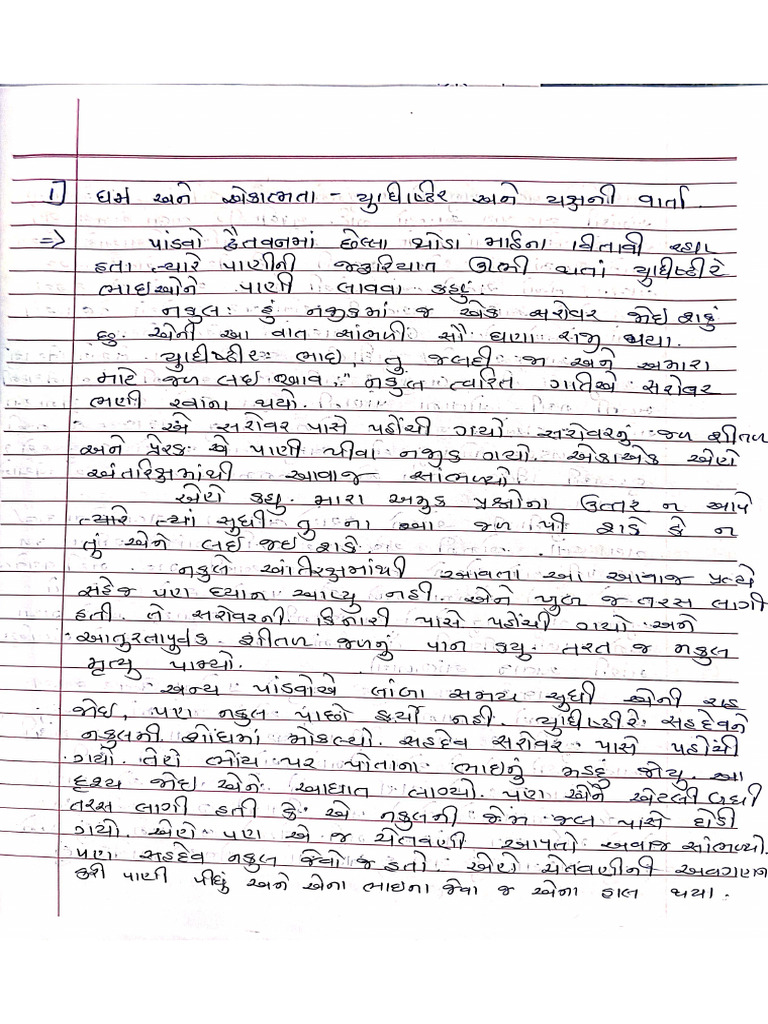 1] ધર્મ અને એકાત્મતા - યુધીષ્ઠિર અને યક્ષની વાર્તા
=> પાંડવો દ્વૈતવનમાં છેલ્લા થોડા માઈના વિતાવી રહ્યા
હતા ત્યારે પાણીની જરૂરિયાત ઊભી થતાં યુધીષ્ઠીરે
ભાઈઓને પાણી લાવવા કહ્યું.
નકુલ: હું નજીકમાં જ એક સરોવર જોઈ શકું
છુ. એની આ વાત સાંભળી સૌ ઘણા રાજી થયા.
યુધીષ્ઠીર: ભાઈ, તુ જલદી જા અને અમારા
માટે જળ લઈ આવ." નકુલ ત્વરિત ગતિએ સરોવર
ભણી રવાના થયો.
એ સરોવર પાસે પહોંચી ગયો સરોવરનું જળ શીતળ
અને પ્રેરક એ પાણી પીવા નજીક ગયો. એકાએક એણે
અંતરિક્ષમાંથી આવાજ સાંભળ્યો.
એણે કહ્યુ. મારા અમુક પ્રશ્નોના ઉત્તર ન આપે
ત્યારે ત્યાં સુધી તુ ના આ જળ પી શકે કે ન
તું એને લઈ જઈ શકે.
નકુલે અંતરિક્ષમાંથી આવતા આ આવાજ પ્રત્યે
સહેજ પણ ધ્યાન આપ્યુ નહી. એને ખુબ જ તરસ લાગી
હતી. તે સરોવરની કિનારી પાસે પહોંચી ગયો અને
આતુરતાપુર્વક શીતળ જળનું પાન કર્યુ. તરત જ નકુલ
મૃત્યુ પામ્યો.
અન્ય પાંડવોએ લાંબા સમય સુધી એની રાહ
જોઈ, પણ નકુલ પાછો ફર્યો નહી. યુધીષ્ઠીરે સહદેવને
નકુલની શોધમાં મોકલ્યો. સહદેવ સરોવર પાસે પહોંચી
ગયો. તેણે ભોંય પર પોતાના ભાઈનું મડદું જોયુ. આ
દૃશ્ય જોઈ એને આઘાત લાગ્યો. પણ એને એટલી બધી
તરસ લાગી હતી કે એ નકુલની જેમ જલ પાસે દોડી
ગયો. એણે પણ એ જ ચેતવણી આપતો અવાજ સાંભળ્યો.
પણ સહદેવ નકુલ જેવો જ હતો. એણે ચેતવણીની અવગણના
કરી પાણી પીધું અને એના ભાઇના જેવા જ એના હાલ થયા.